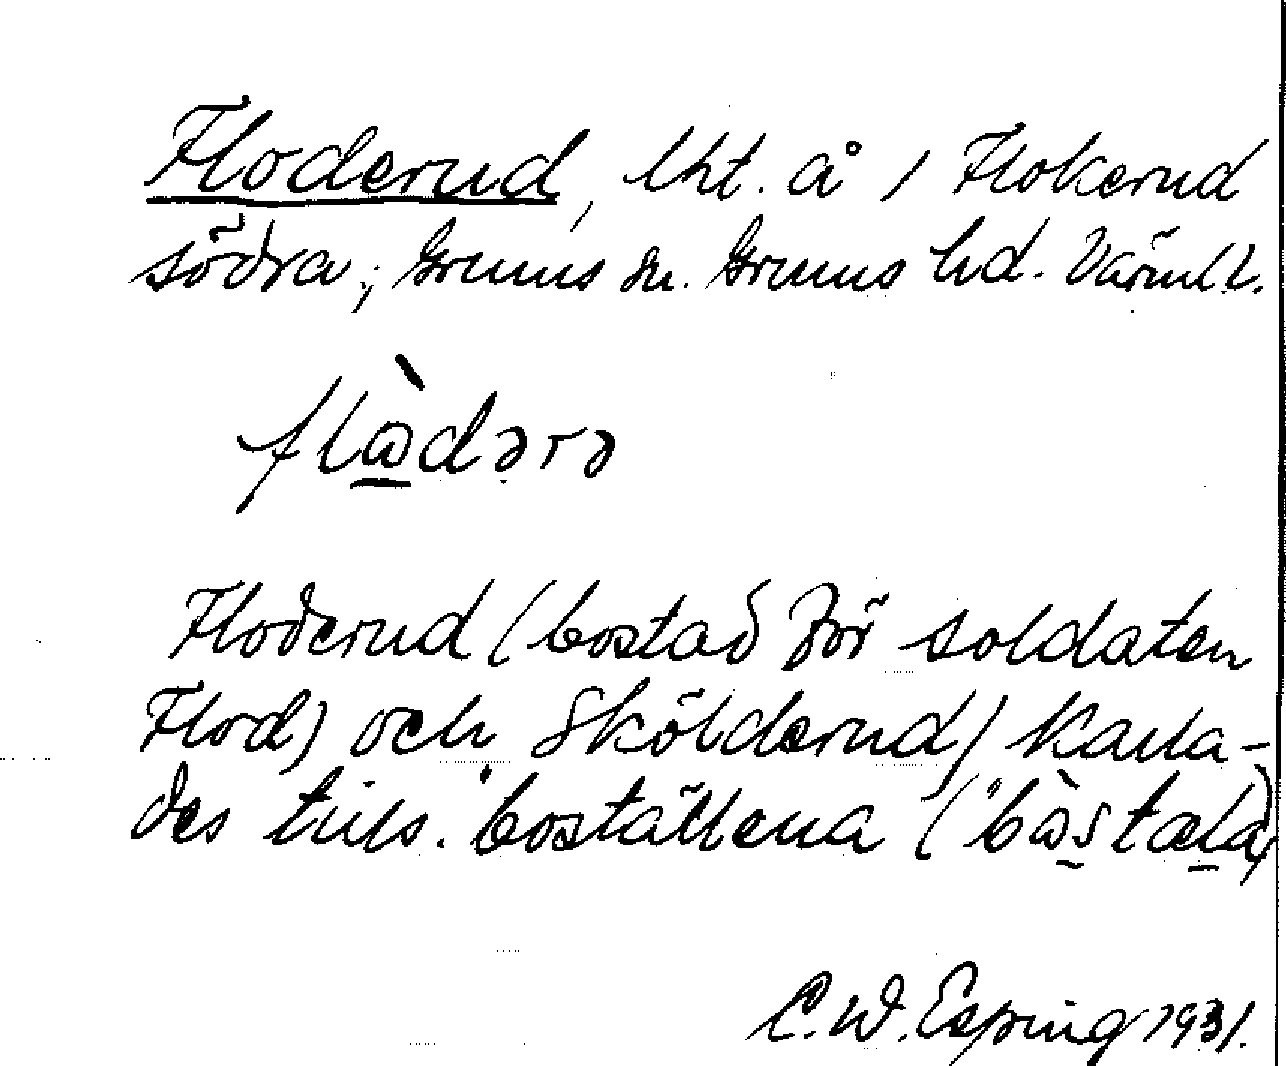 Floderud, lht. å 1 Flokerud
södra, Grums sn. Grums hd. Värml.
flə̀dərə
Floderud (bostad för soldaten
Flod) och Sköldernd) kalla-
des tills. "boställena ("
C. W. Esping 1931.